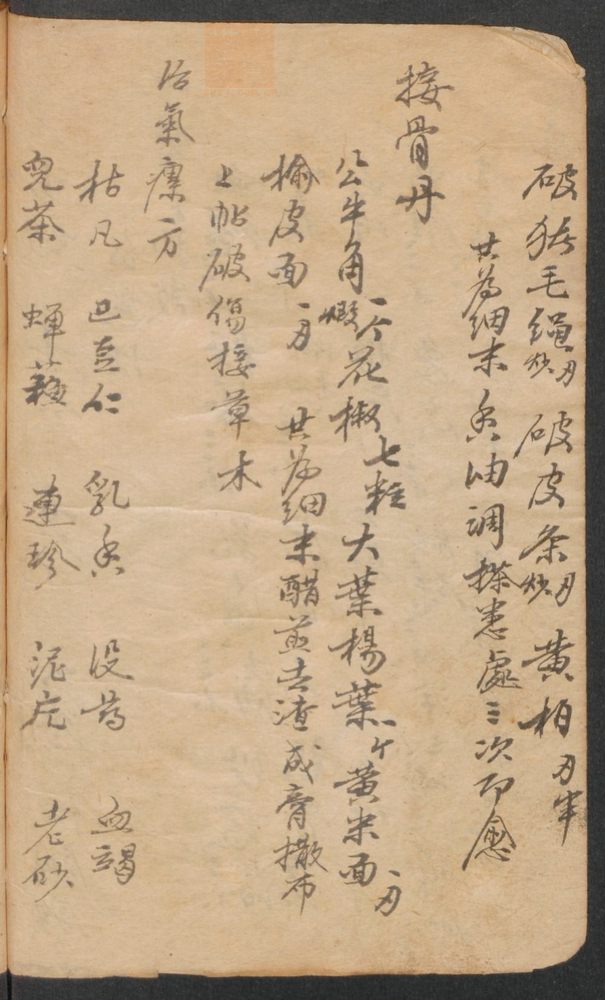 破 毛绳炒 破皮条炒 黄柏
共為细末香油调搽患處三次即愈
接骨丹
公牛角一个煅 花椒七粒 大葉楊葉一个 黄米面
榆皮面 共為细末醋煎去渣成膏撒布
上帖破傷接草木
治氣瘰方
枯凡 巴豆仁 乳香 没药 血竭
兒茶 蝉蘓 連珍 泥 老砂